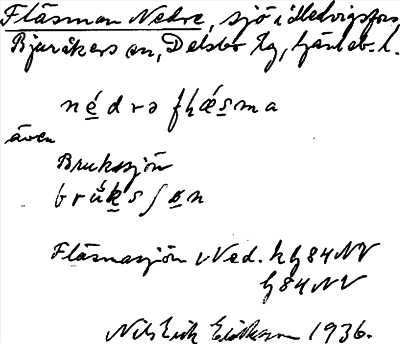 Fläsman Nedre, sjö i Hedvigsfors,
Bjuråkers sn, Delsbo tg, Gävleb. l.
nédrə fhǽsma
även
Brukssjön
brúksʃøn
Fläsmasjön, Ned. h G84NV
G84NV
Nils Erik Eriksson 1936.